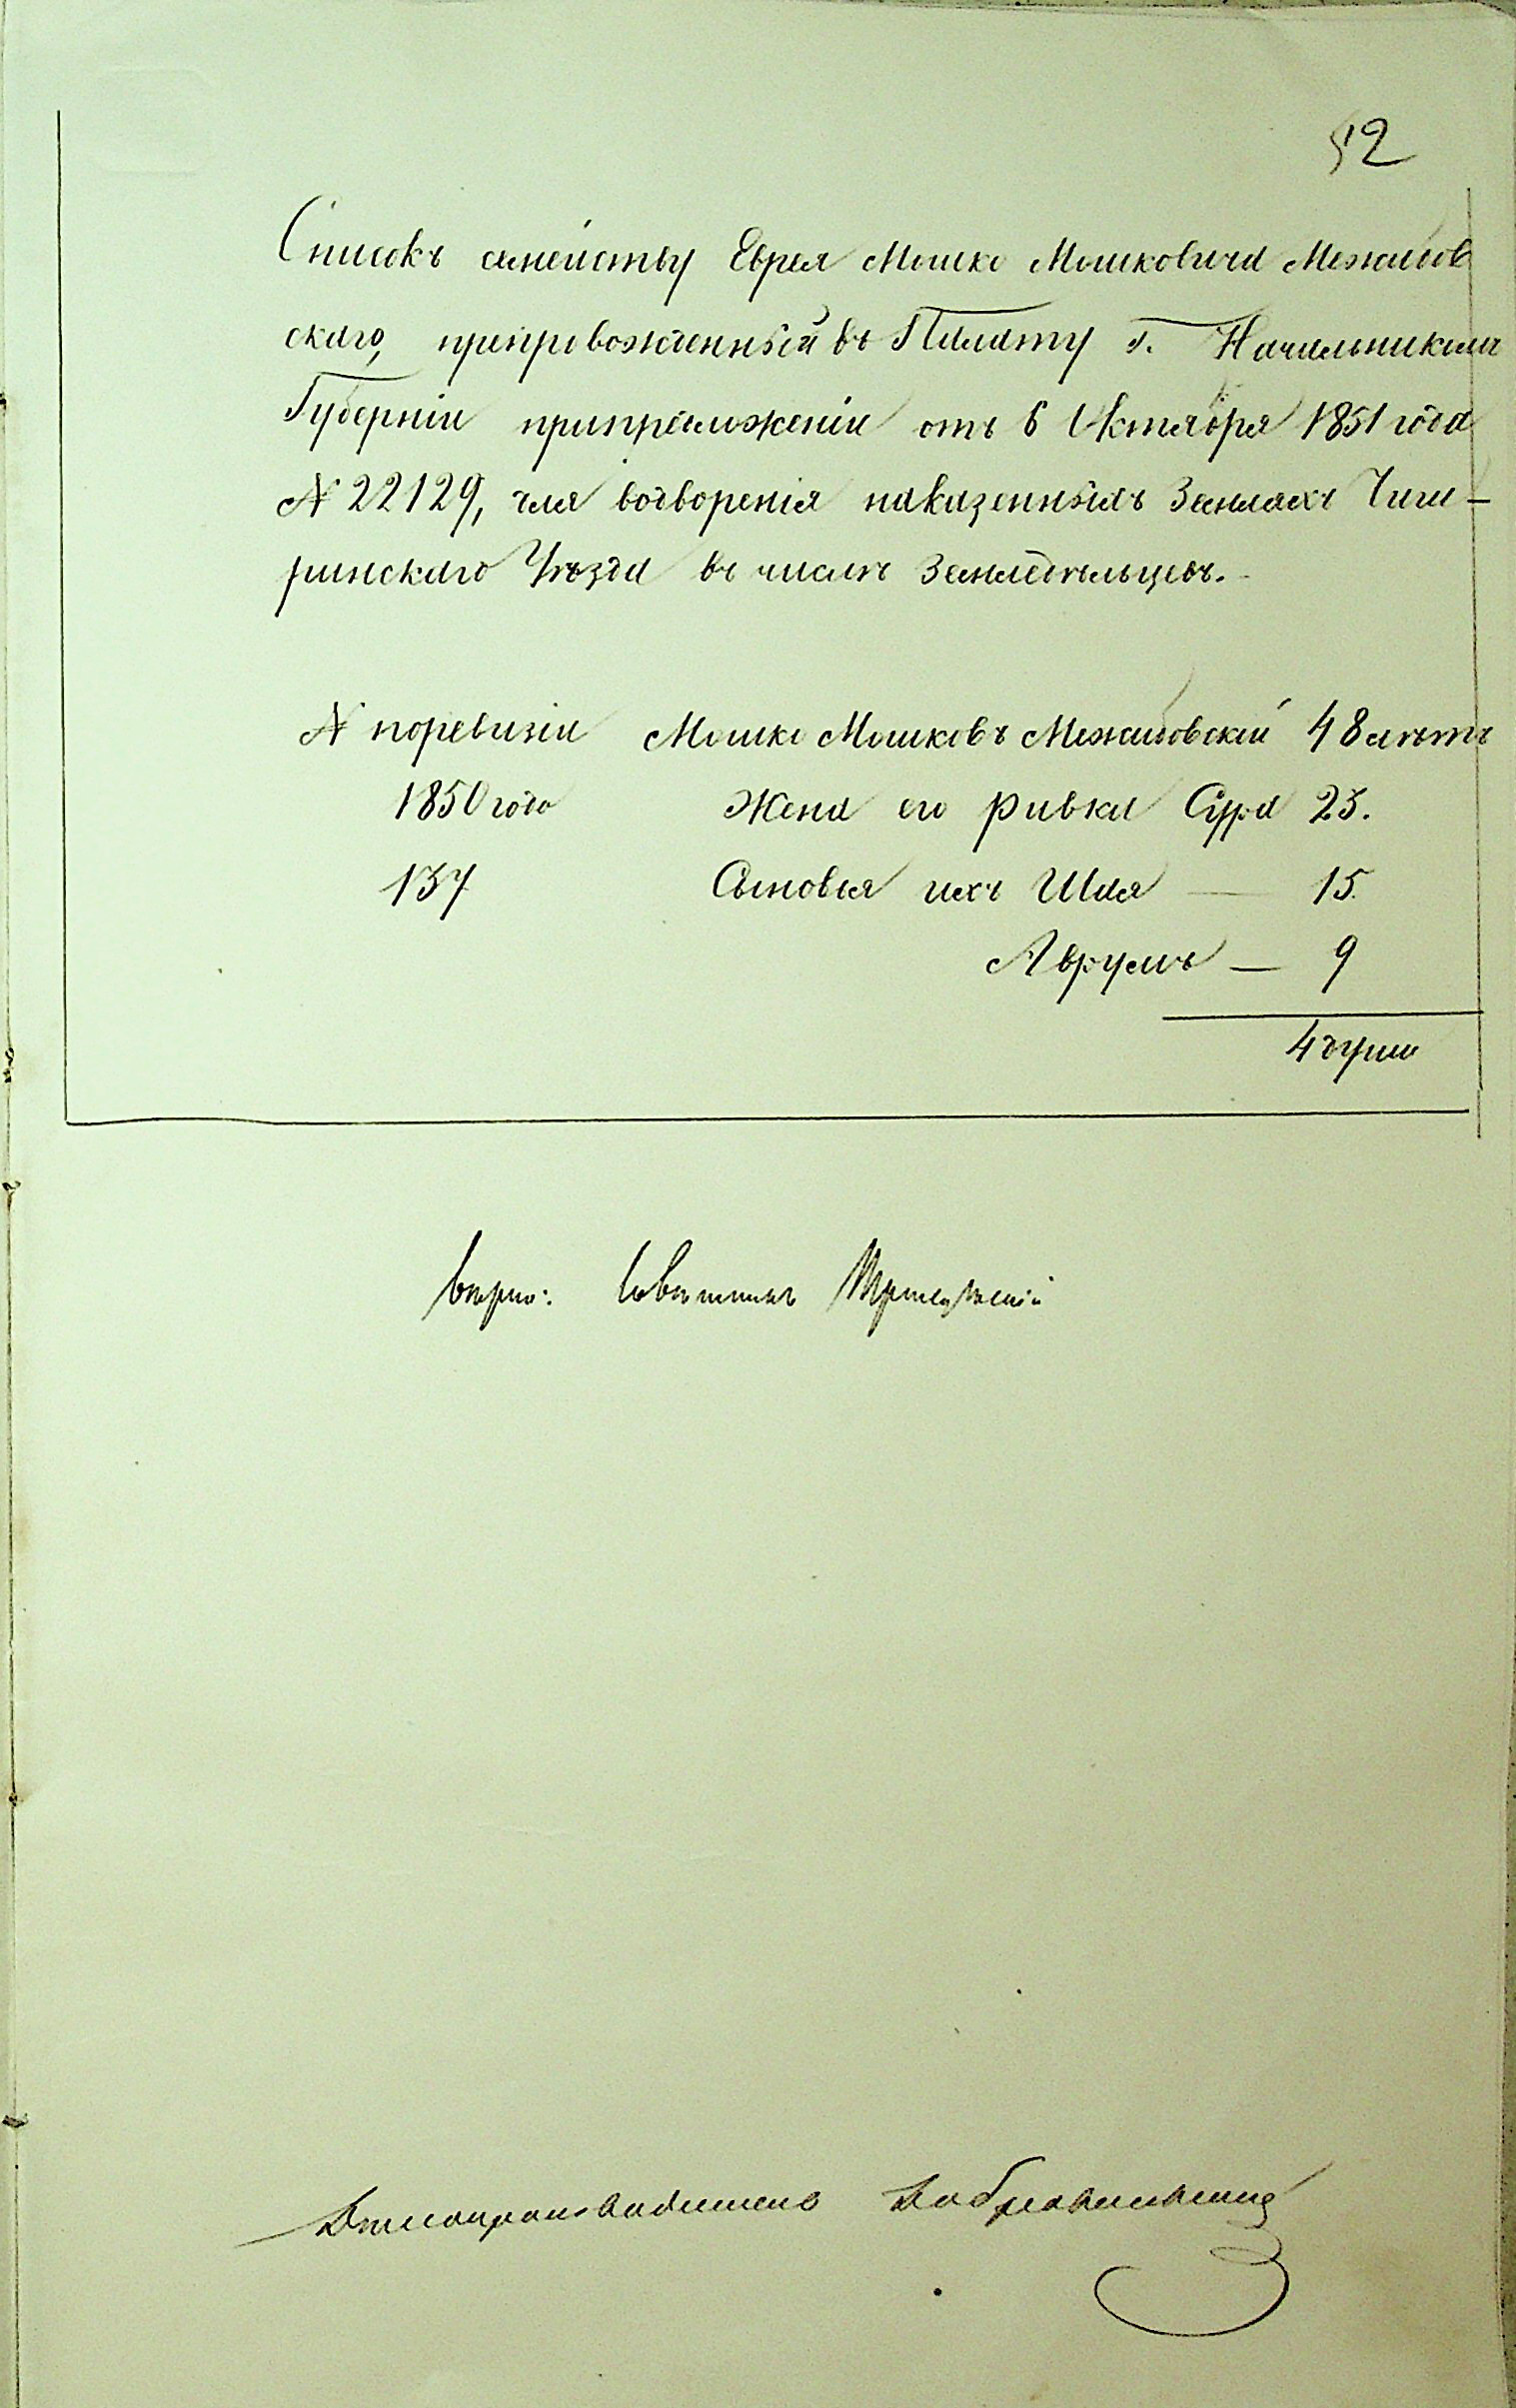 52
Списокъ семейству Еврея Мошко Мошковича Межибов
скаго, препровожденный въ Палату г. Начальникомъ
Губерніи припредложеніи отъ 6 Октября 1851 года
№ 22129, для водворенія наказенныхъ Земляхъ Чиги-
ринскаго Уѣзда въ числѣ Земледѣльцевъ.
№ поревизіи Мошко Мошковъ Межибовскій 48 лѣтъ
1850 года Жена его Ривка Сура 23.
137 Сыновья ихъ Шая — 15.
Аврумъ — 9
4 души
Вѣрно: Совѣтникъ
Дѣлопроизводитель